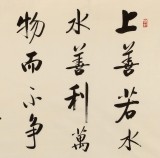 上善若水
水善利萬
物而不争